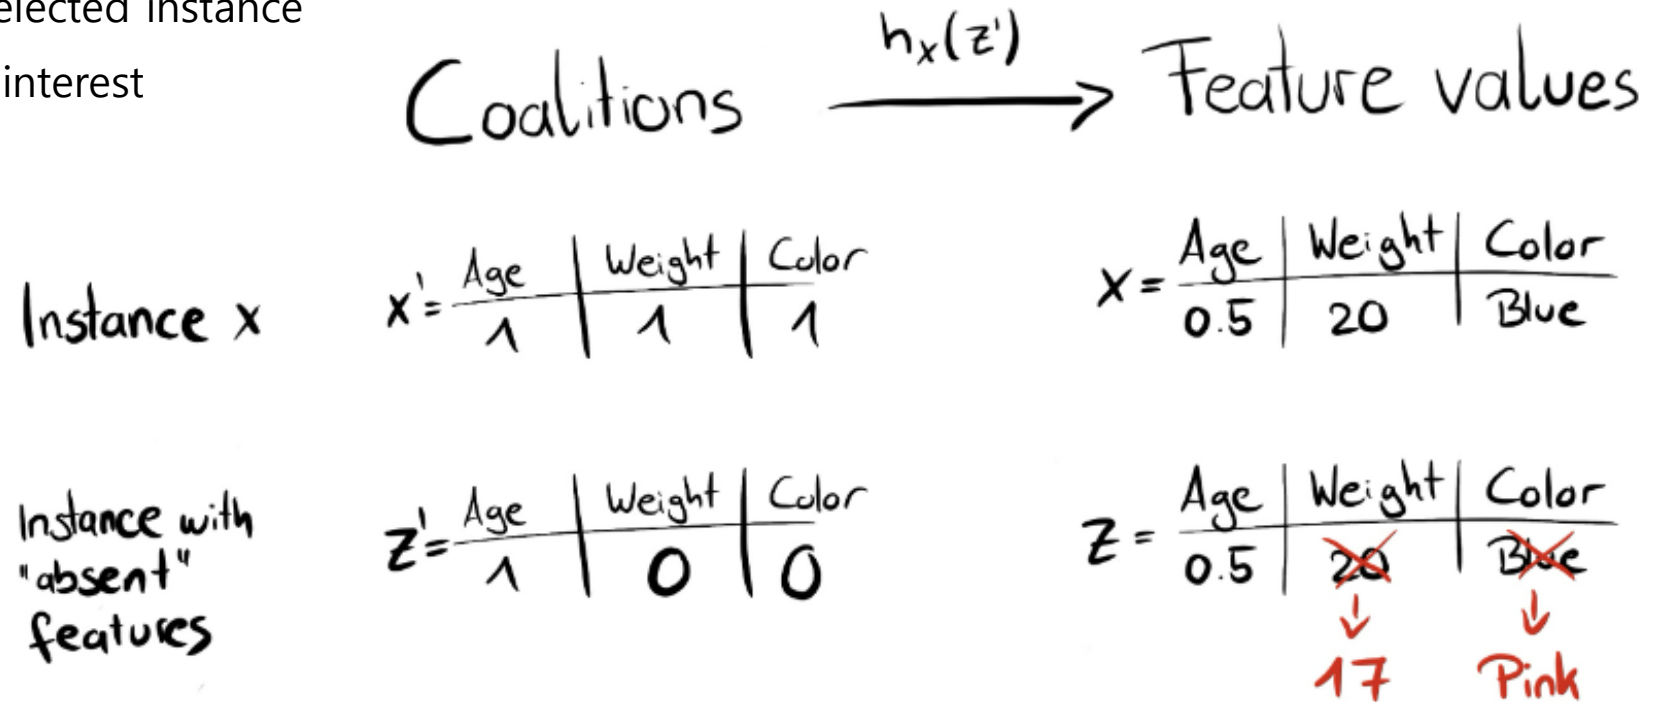 elected instance
interest
Coalitions h_x(z') → Feature values
Instance x
x' = Age | Weight | Color
1 | 1 | 1
x = Age | Weight | Color
0.5 | 20 | Blue
Instance with
"absent"
features
z' = Age | Weight | Color
1 | 0 | 0
z = Age | Weight | Color
0.5 | 20 | Blue
↓ ↓
17 Pink